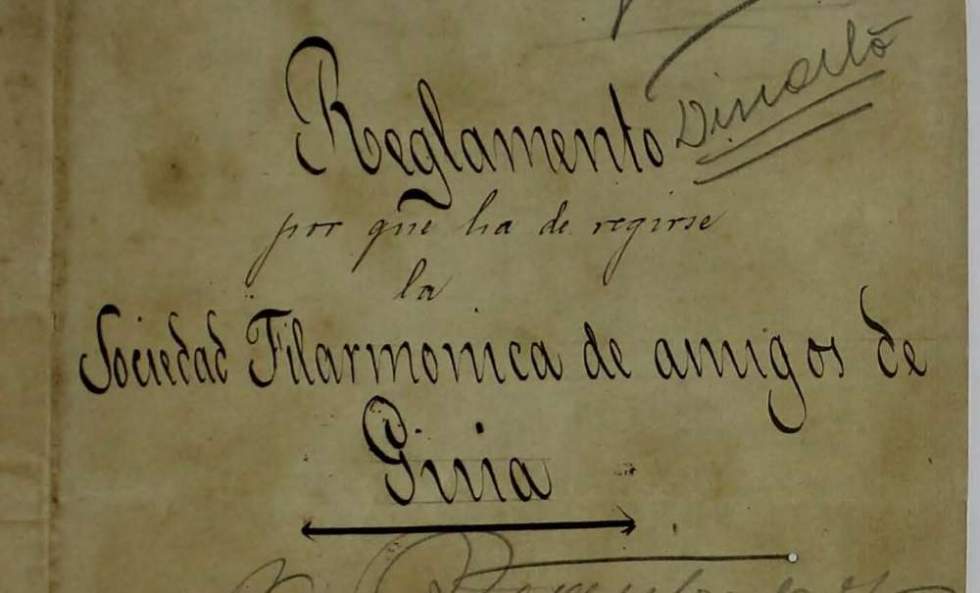 Reglamento
por que ha de regirse
la
Sociedad Filarmonica de amigos de
Guia